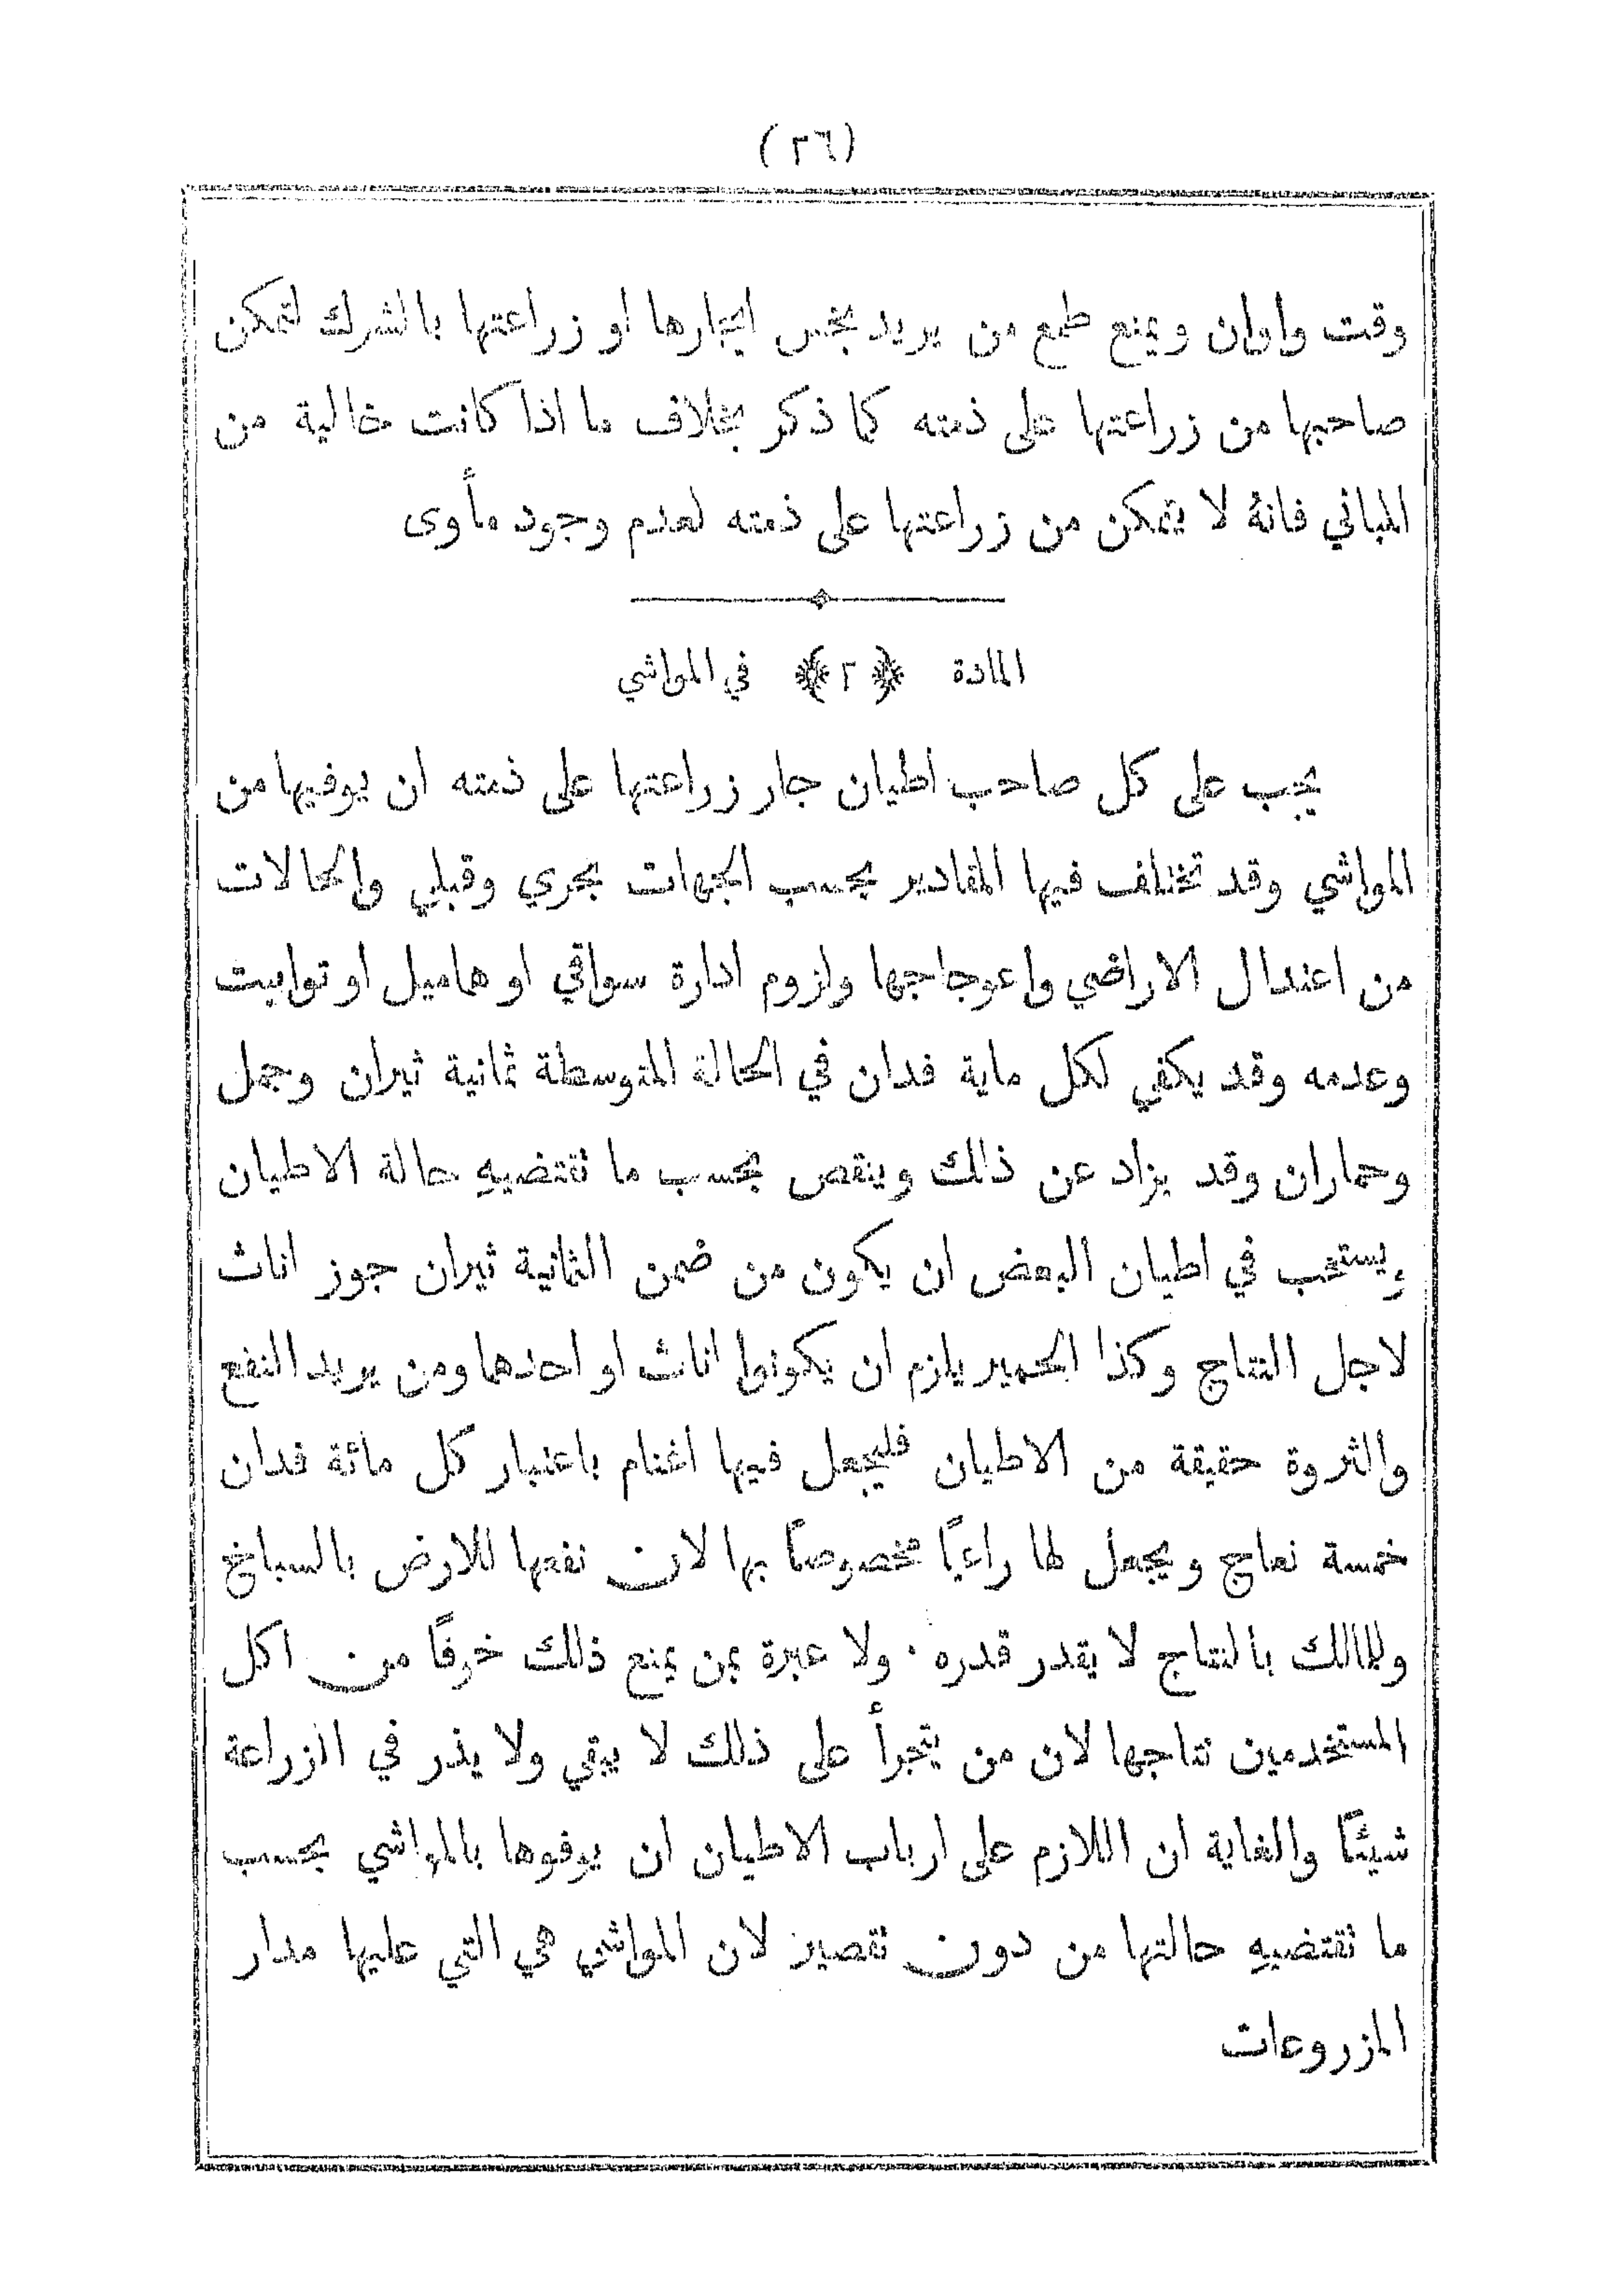 (٣٦)
وقت واوان ويمنع طمع من يريد بخس ايجارها او زراعتها بالشرك لتمكن
صاحبها من زراعتها على ذمته كما ذكر بخلاف ما اذا كانت خالية من
المباني فانهُ لا يتمكن من زراعتها على ذمته لعدم وجود مأوى
المادة ﴿٢﴾ في المواشي
يجب على كل صاحب اطيان جار زراعتها على ذمته ان يوفيها من
المواشي وقد تختلف فيها المقادير بحسب الجهات بحري وقبلي والحالات
من اعتدال الاراضي واعوجاجها ولزوم ادارة سواقي او هماميل او توابيت
وعدمه وقد يكفي لكل ماية فدان في الحالة المتوسطة ثمانية ثيران وجمل
وحماران وقد يزاد عن ذلك وينقص بحسب ما تقتضيهِ حالة الاطيان
ويستحب في اطيان البعض ان يكون من ضمن الثمانية ثيران جوز اناث
لاجل النتاج وكذا الحمير يلزم ان يكونوا اناث او احدهما ومن يريد النفع
والثروة حقيقة من الاطيان فليجعل فيها اغنام باعتبار كل مائة فدان
خمسة نعاج ويجعل لها راعيًا مخصوصًا بها لان نفعها للارض بالسباخ
وللمالك بالنتاج لا يقدر قدره. ولا عبرة بمن يمنع ذلك خوفًا من اكل
المستخدمين نتاجها لان من يتجرأ على ذلك لا يبقي ولا يذر في الزراعة
شيئًا والغاية ان اللازم على ارباب الاطيان ان يوفوها بالمواشي بحسب
ما تقتضيهِ حالتها من دون تقصير لان المواشي هي التي عليها مدار
المزروعات